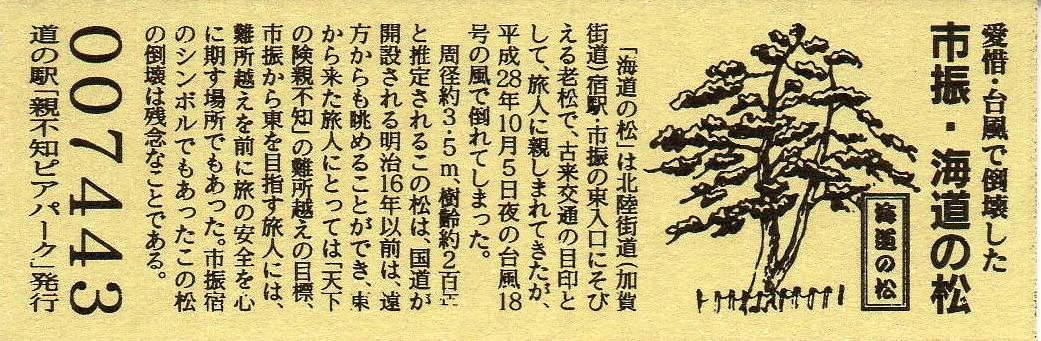 愛惜・台風で倒壊した
市振・海道の松
海道の松
「海道の松」は北陸街道（加賀
街道）宿駅・市振の東入口にそび
える老松で、古来交通の目印と
して、旅人に親しまれてきたが、
平成28年10月5日夜の台風18
号の風で倒れてしまった。
周径約3・5m、樹齢約2百
と推定されるこの松は、国道が
開設される明治16年以前は、遠
方からも眺めることができ、東
から来た旅人にとっては「天下
の険親不知」の難所越えの目標、
市振から東を目指す旅人には、
難所越えを前に旅の安全を心
に期す場所でもあった。市振宿
のシンボルでもあったこの松
の倒壊は残念なことである。
007443
道の駅「親不知ピアパーク」発行